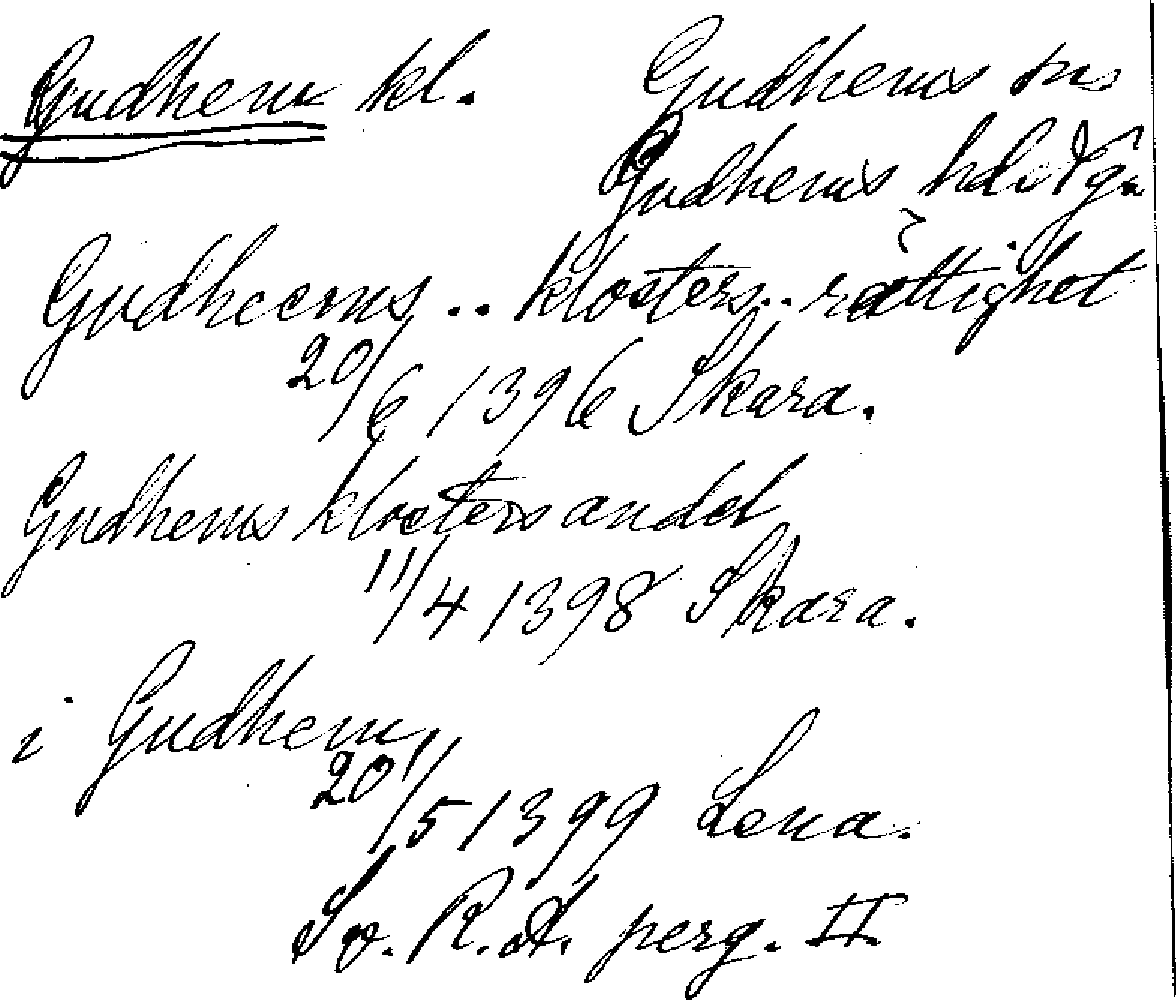 Gudhem kl. Gudhems sn
Gudhems hd Vg.
Gudheems .. klosters .. rättighet
20/6 1396 Skara.
Gudhems klosters andel
11/4 1398 Skara.
i Gudhem
20/5 1399 Lena.
Sv. R.A. perg. II.